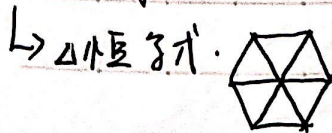 ↳ △恒等式.